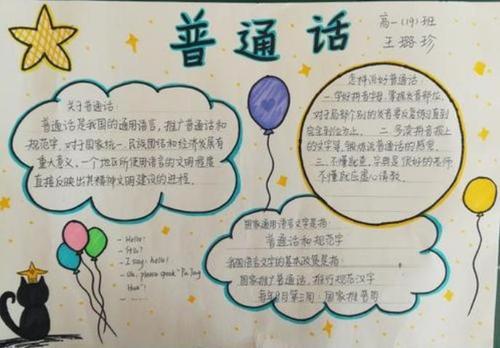 普通话
高一(19)班
王璐珍
关于普通话:
普通话是我国的通用语言,推广普通话和
规范字,对于国家统一、民族团结和经济发展有
重大意义,一个地区所使用语言的文明程度
直接反映出其精神文明建设的进程。
怎样说好普通话:
一.学好拼音字母,掌握发音部位,
对于易部个别的发音要反复练习直到
完全到位为止。二.多读拼音报上
的文字等,锻炼说普通话的感觉。
三.不懂就查,字典是很好的老师
不懂就应虚心请教。
- Hello!
- Stu?
- I say: hello!
- Uh, please speak "Pu Tong
Hua"!
- ......
国家通用语言文字是指:
普通话和规范字
我国语言文字的基本政策是指:
国家推广普通话,推行规范汉字
每年9月第三周:国家推普周